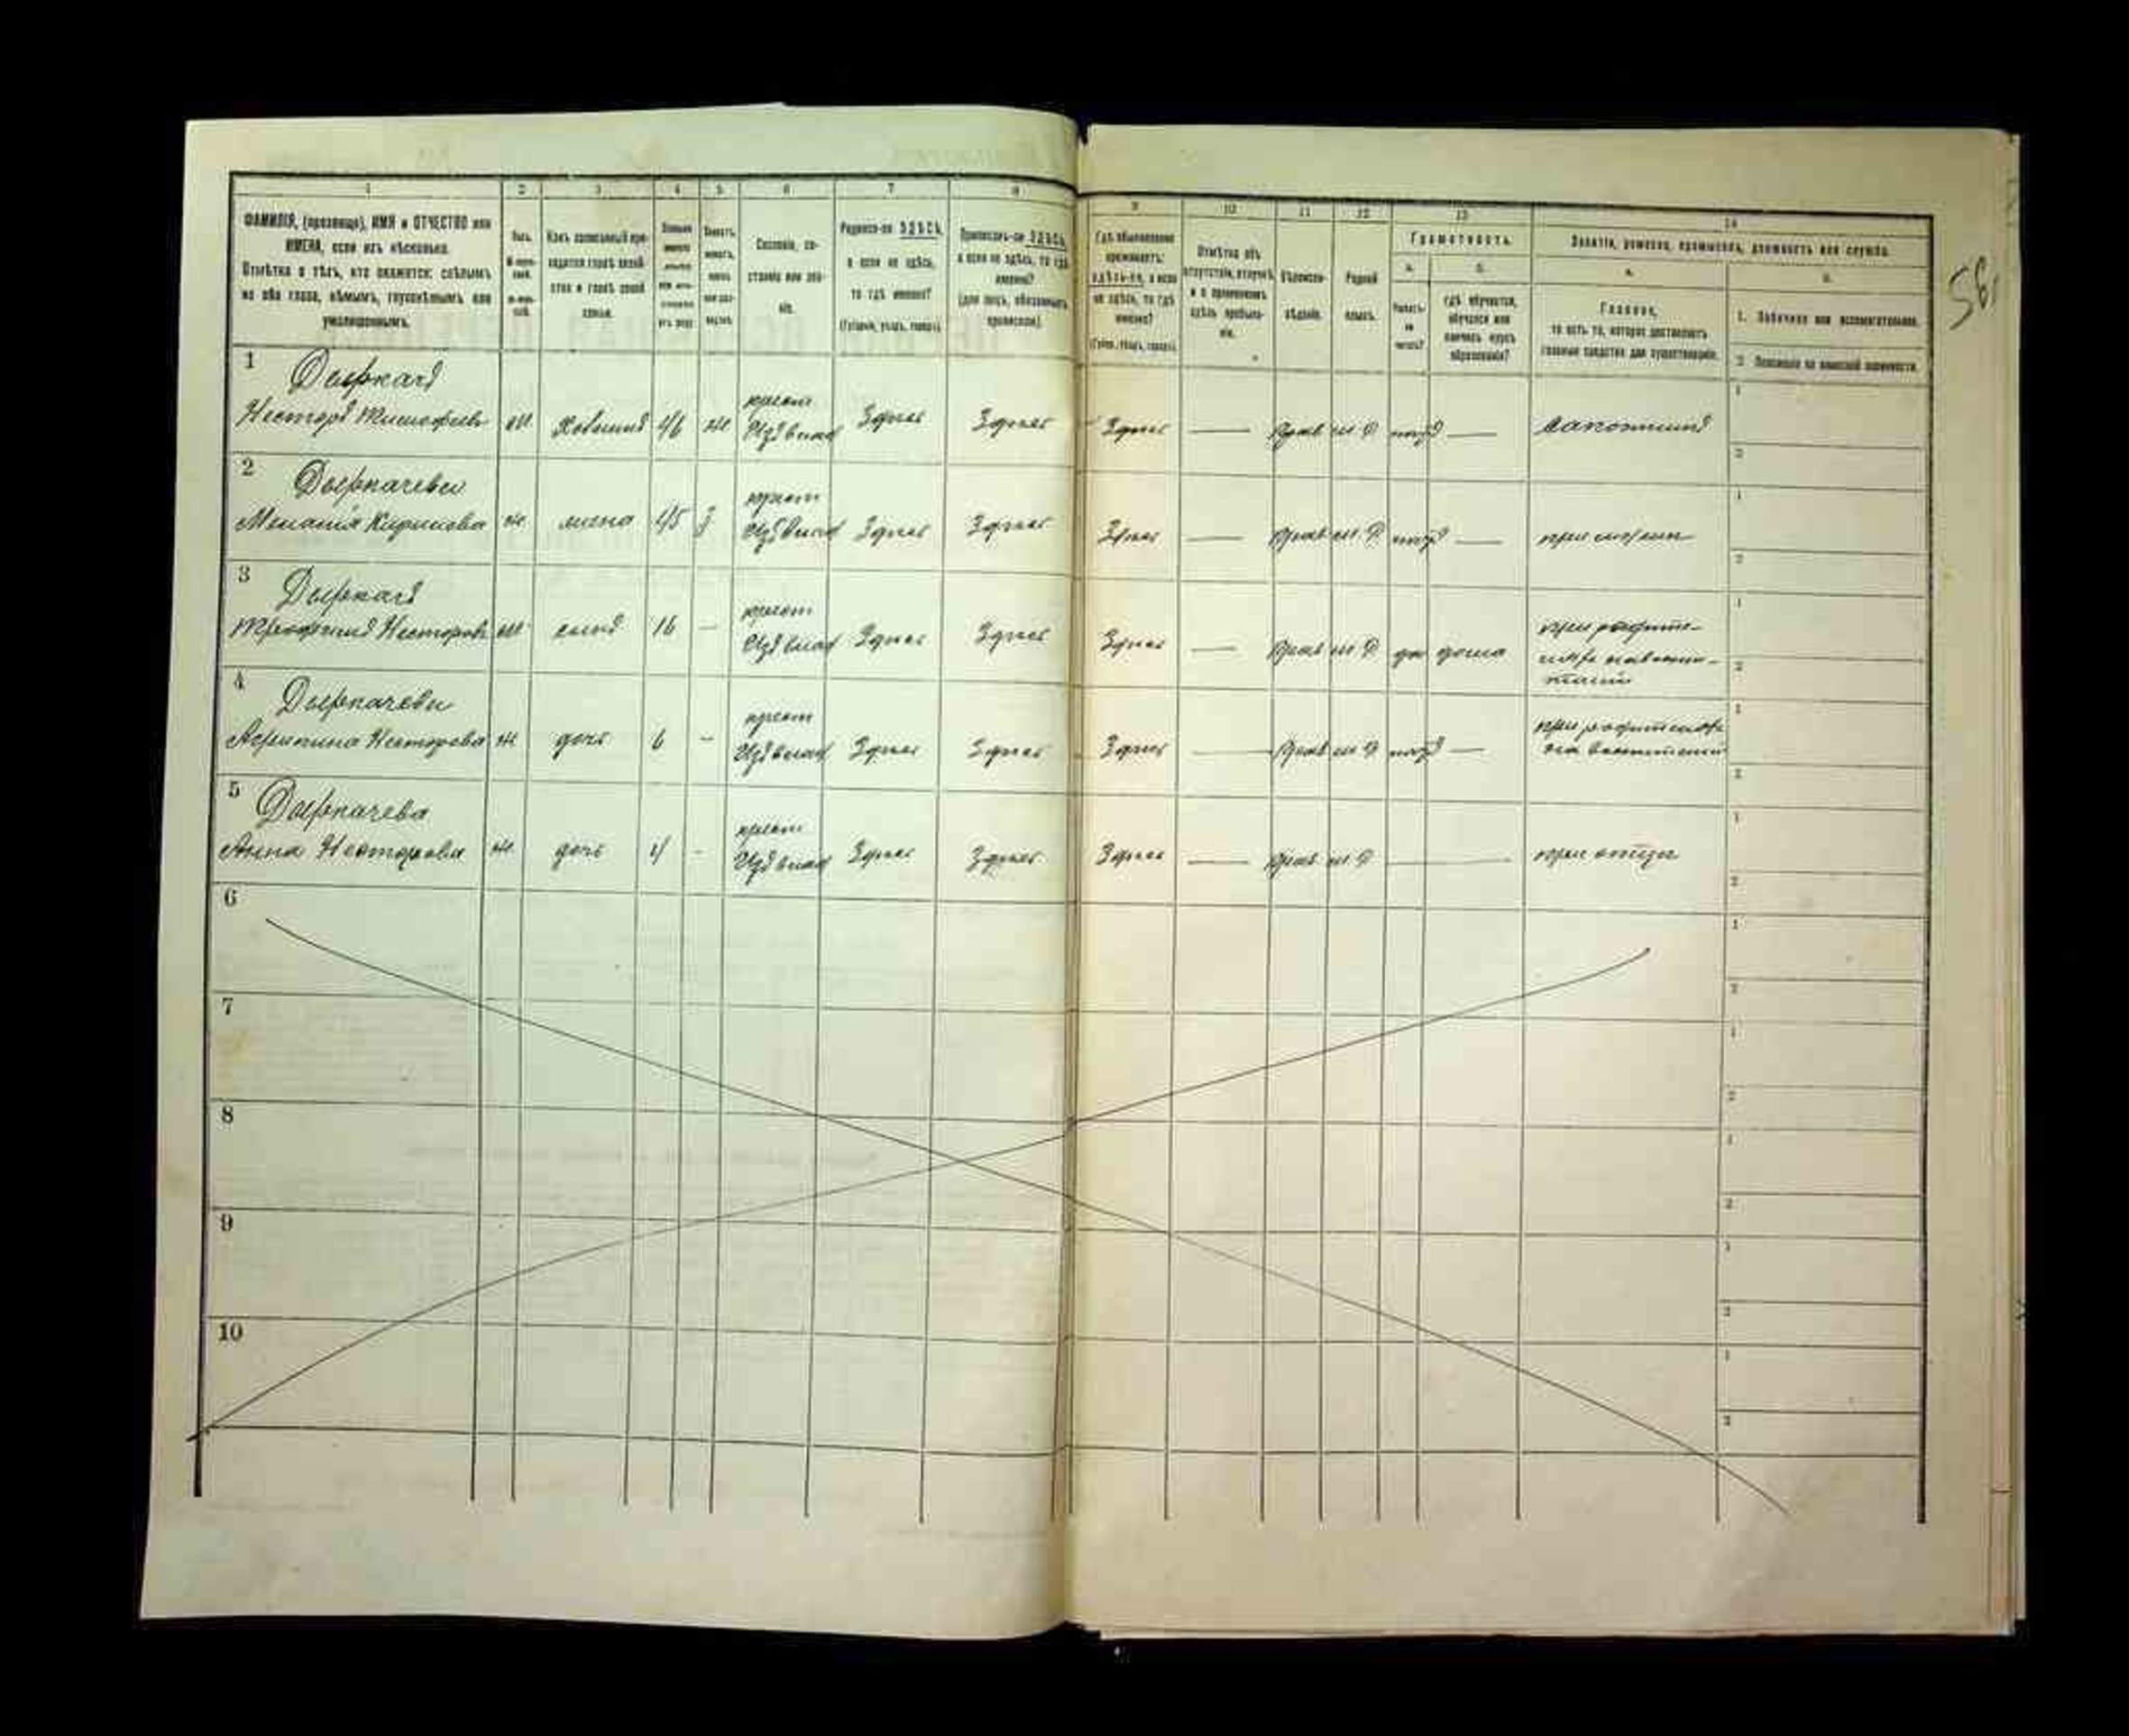 1 2 3 4 5 6 7 8 9 10 11 12 13 14
ФАМИЛІЯ, (прозвище), ИМЯ и ОТЧЕСТВО или
ИМЕНА, если ихъ нѣсколько.
Отмѣтка о тѣхъ, кто окажется: слѣпымъ
на оба глаза, нѣмымъ, глухонѣмымъ или
умалишеннымъ.
Полъ.
Какъ записанный при-
ходится главѣ хозяй-
ства и главѣ своей
семьи.
Сословіе, со-
стояніе или зва-
ніе.
Родился-ли ЗДѢСЬ,
а если не здѣсь,
то гдѣ именно?
(Губернія, уѣздъ, городъ).
Приписанъ-ли ЗДѢСЬ,
а если не здѣсь, то гдѣ
именно?
(для лицъ, обязанныхъ
припиской).
Гдѣ обыкновенно
проживаетъ:
здѣсь-ли, а если
не здѣсь, то гдѣ
именно?
(Губерн., уѣздъ, городъ).
Отмѣтка объ
отсутствіи, отлучкѣ
и о временномъ
здѣсь пребыва-
ніи.
Вѣроиспо-
вѣданіе.
Родной
языкъ.
Грамотность.
а. б.
Умѣетъ-
ли
читать?
гдѣ обучается,
обучался или
кончилъ курсъ
образованія?
Занятіе, ремесло, промыселъ, должность или служба.
а. б.
Главное,
то есть то, которое доставляетъ
главныя средства для существованія.
1. Побочное или вспомогательное.
2. Положеніе по воинской повинности.
56
1 Дыркачъ
Несторъ Тимофеев м. Хозяинъ 46 ж крест Изъ влад Здѣсь Здѣсь Здѣсь — Прав м. Р нѣтъ — Сапожникъ
2 Дыркачева
Меланія Кирилова ж. жена 45 З крест Изъ влад Здѣсь Здѣсь Здѣсь — Прав м. Р нѣтъ — при мужѣ
3 Дыркачъ
Трофимъ Несторовъ м. сынъ 16 — крест Изъ влад Здѣсь Здѣсь Здѣсь — Прав м. Р да дома при родите-
4 Дыркачева
Агрипина Несторова ж дочь 6 — крест Изъ влад Здѣсь Здѣсь Здѣсь — Прав м. Р нѣтъ —
5 Дыркачева
Анна Несторова ж. дочь 4 - крест Изъ влад Здѣсь Здѣсь Здѣсь — Прав м. Р — при отцѣ
6
7
8
9
10